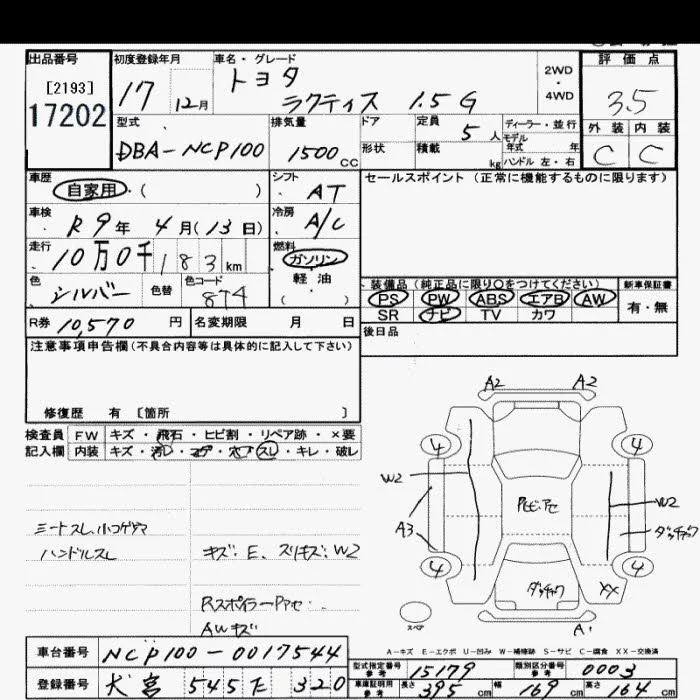 出品番号 初度登録年月 車名・グレード 評価点
[2193] 17 12月 トヨタ 2WD ・ 4WD 3.5
17202 ラクティス 1.5G
型式 排気量 ドア 定員 5人 ディーラー・並行 外装 内装
DBA-NCP100 1500cc 形状 積載 kg モデル年式 年 C C
ハンドル 左・右
車歴 自家用・( ) シフト AT セールスポイント(正常に機能するものに限ります)
車検 R9年 4月(13日) 冷房 A/C
走行 10万0千183km 燃料 ガソリン
色 シルバー 色替 色コード 874 軽油 ・( )
装備品(純正品に限り○をつけてください) 新車保証書
PS PW ABS エアB AW 有・無
SR ナビ TV カワ
R券 10,570円 名変期限 月 日 後日品
注意事項申告欄(不具合内容等は具体的に記入して下さい)
修復歴 有 〔箇所 〕
検査員 FW キズ・飛石・ヒビ割・リペア跡・×要
記入欄 内装 キズ・汚レ・コゲ・穴・スレ・キレ・破レ
A2 A2
4 4
W2 W2
A3
4 4
XX
A1
スペア
シートスレ、小コゲ
ハンドルスレ
キズ:E、スリキズ:W2
AWキズ
A-キズ E-エクボ U-凹み W-補修跡 S-サビ C-腐食 XX-交換済
車台番号 NCP100-0017544
登録番号 545 320
型式指定番号 参考 15179 類別区分番号 参考 0003
車庫証明用 参考 長さ 395cm 幅 169cm 高さ 164cm